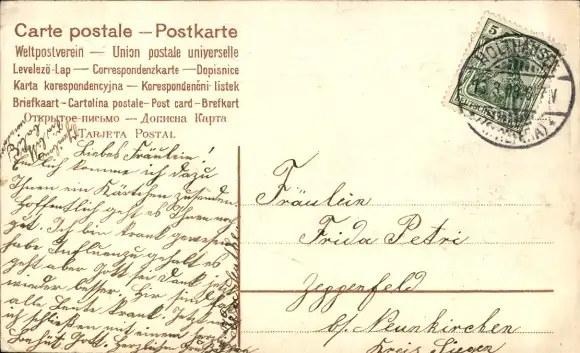 Carte postale — Postkarte
Weltpostverein — Union postale universelle
Levelező-Lap — Correspondenzkarte — Dopisnice
Karta korespondencyjna — Korespondenčni listek
Briefkaart - Cartolina postale - Post card - Brefkort
Открытое-письмо — Дописна Карта
Tarjeta Postal
5
Liebes Fräulein!
Endlich komme ich dazu
Ihnen ein Kärtchen zu senden.
Hoffentlich geht es Ihnen noch
gut. Ich bin krank gewesen
habe Influenza gehabt es
geht aber Gott sei Dank jetzt
wieder besser. Hier sind fast
alle Leute krank. Jetzt
ich schließen mit einem
Behüt Gott. Herzlichen Gruß
Fräulein
Frida Petri
Zeppenfeld
b/. Neunkirchen
Kreis Siegen